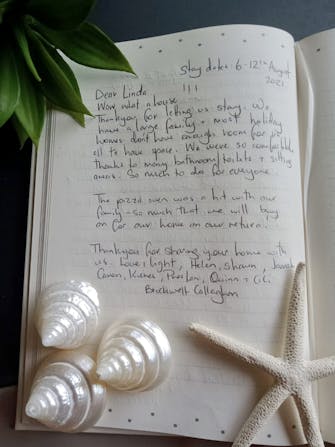 Stay dates: 6-12th August
2021
Dear Linda
!!!
Wow, what a house
Thankyou for letting us stay. We
have a large family & most holiday
homes don't have enough room for us
all to have space. We were so comfortable
thanks to many bathrooms/toilets & sitting
areas. So much to do for everyone.
The pizza oven was a hit with our
family - so much that we will buy
on for our home on our return.
Thankyou for sharing your home with
us. Love & light, Helen, Shaun,
Preston, Quinn & C.C.